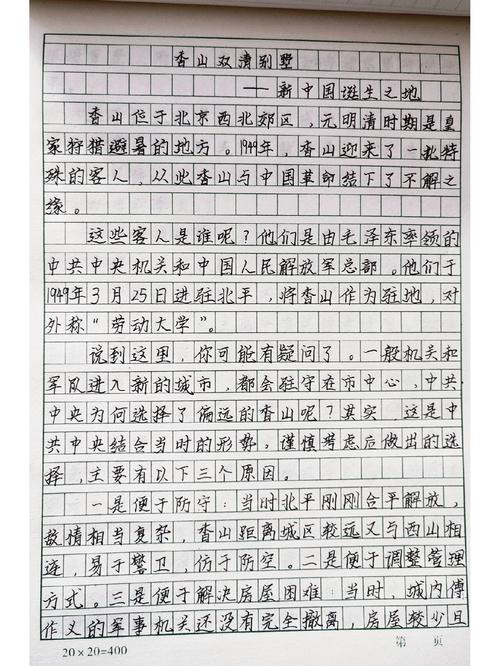 香山双清别墅
——新中国诞生之地
香山位于北京西北郊区，元明清时期是皇
家狩猎避暑的地方。1949年，香山迎来了一批特
殊的客人，从此香山与中国革命结下了不解之
缘。
这些客人是谁呢？他们是由毛泽东率领的
中共中央机关和中国人民解放军总部。他们于
1949年3月25日进驻北平，将香山作为驻地，对
外称“劳动大学”。
说到这里，你可能有疑问了。一般机关和
军队进入新的城市，都会驻守在市中心，中共
中央为何选择了偏远的香山呢？其实 这是中
共中央结合当时的形势，谨慎考虑后做出的选
择，主要有以下三个原因。
一是便于防守：当时北平刚刚合平解放，
敌情相当复杂，香山距离城区较远又与西山相
连，易于警卫，仿于防空。二是便于调整管理
方式。三是便于解决房屋困难：当时，城内傅
作义的军事机关还没有完全撤离，房屋较少且
20×20=400
第 页